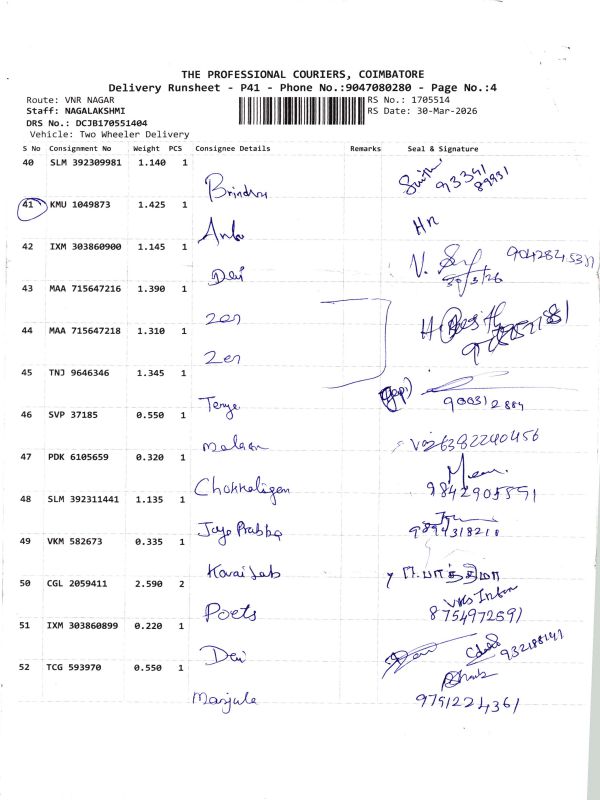 THE PROFESSIONAL COURIERS, COIMBATORE
Delivery Runsheet - P41 - Phone No.:9047080280 - Page No.:4
Route: VNR NAGAR
Staff: NAGALAKSHMI
DRS No.: DCJB170551404
Vehicle: Two Wheeler Delivery
RS No.: 1705514
RS Date: 30-Mar-2026
S No Consignment No Weight PCS Consignee Details Remarks Seal & Signature
40 SLM 392309981 1.140 1
Brindha 93341 89931
41 KMU 1049873 1.425 1
Anbu HR
42 IXM 303860900 1.145 1
Devi V. 30/3/26
43 MAA 715647216 1.390 1
Zen
44 MAA 715647218 1.310 1
Zen
45 TNJ 9646346 1.345 1
900312884
46 SVP 37185 0.550 1
6382240456
47 PDK 6105659 0.320 1
Chokkaligen 9842905591
48 SLM 392311441 1.135 1
Jaya Prabha 9894318210
49 VKM 582673 0.335 1
Kovai Lab பாத்திமா
50 CGL 2059411 2.590 2
Poets 8754972591
51 IXM 303860899 0.220 1
Devi
52 TCG 593970 0.550 1
Manjula 9791224361